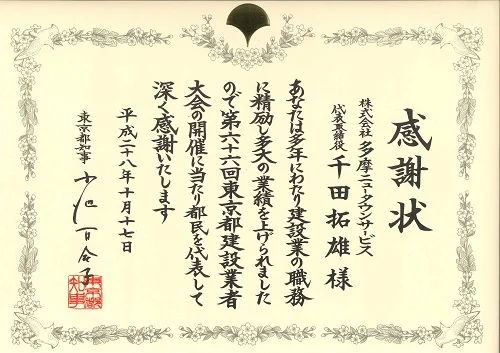 感謝状
株式会社 多摩ニュータウンサービス
代表取締役 千田拓雄様
あなたは多年にわたり建設業の職務
に精励し多大の業績を上げられました
ので第六十六回東京都建設業者
大会の開催に当たり都民を代表して
深く感謝いたします
平成二十八年十月十七日
東京都知事 小池百合子
東京都
知事